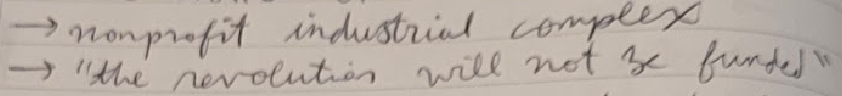 → nonprofit industrial complex
→ "the revolution will not be funded"